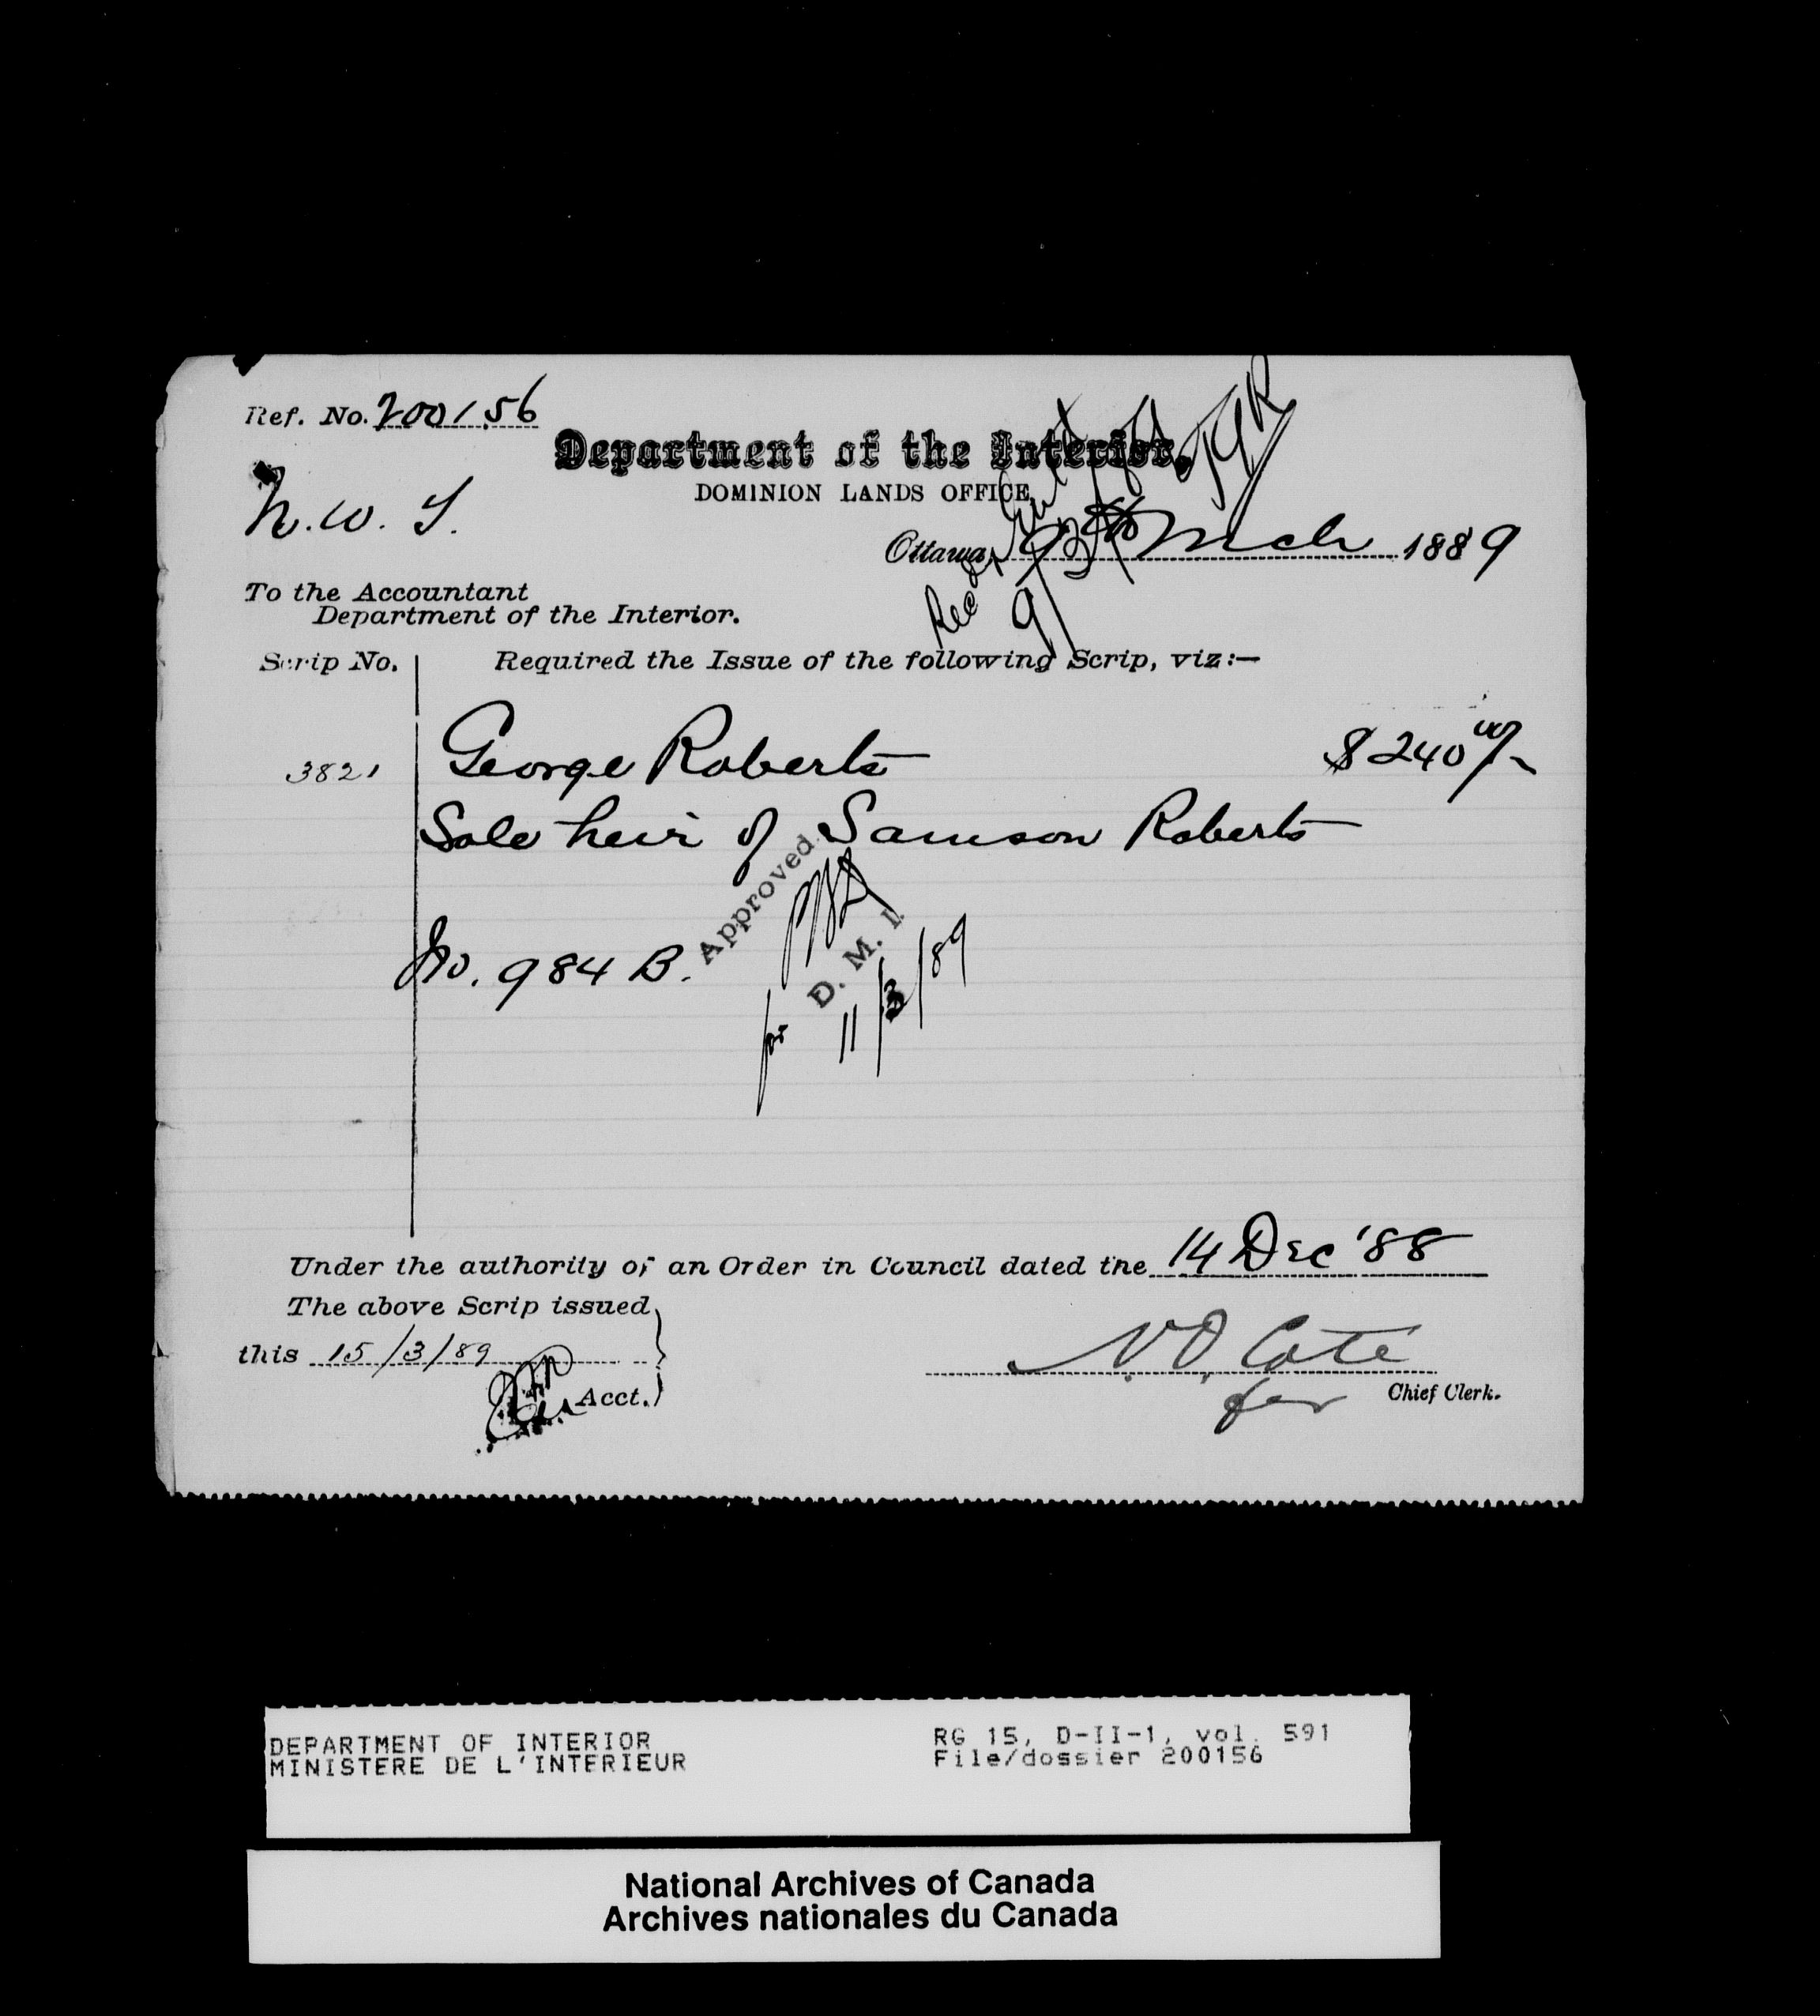 Ref. No. 200156
Department of the Interior.
DOMINION LANDS OFFICE,
N. W. T.
Ottawa, 9th Mch 1889
To the Accountant
Department of the Interior.
Scrip No. Required the Issue of the following Scrip, viz:—
3821 George Roberts $240 00/-
Sole heir of Samson Roberts
No. 984 B.
Approved.
for D. M. I.
11/3/89
Under the authority of an Order in Council dated the 14 Dec '88
The above Scrip issued
this 15/3/89
Acct.
N. O. Cote
for Chief Clerk.
DEPARTMENT OF INTERIOR RG 15, D-II-1, vol. 591
MINISTERE DE L'INTERIEUR File/dossier 200156
National Archives of Canada
Archives nationales du Canada